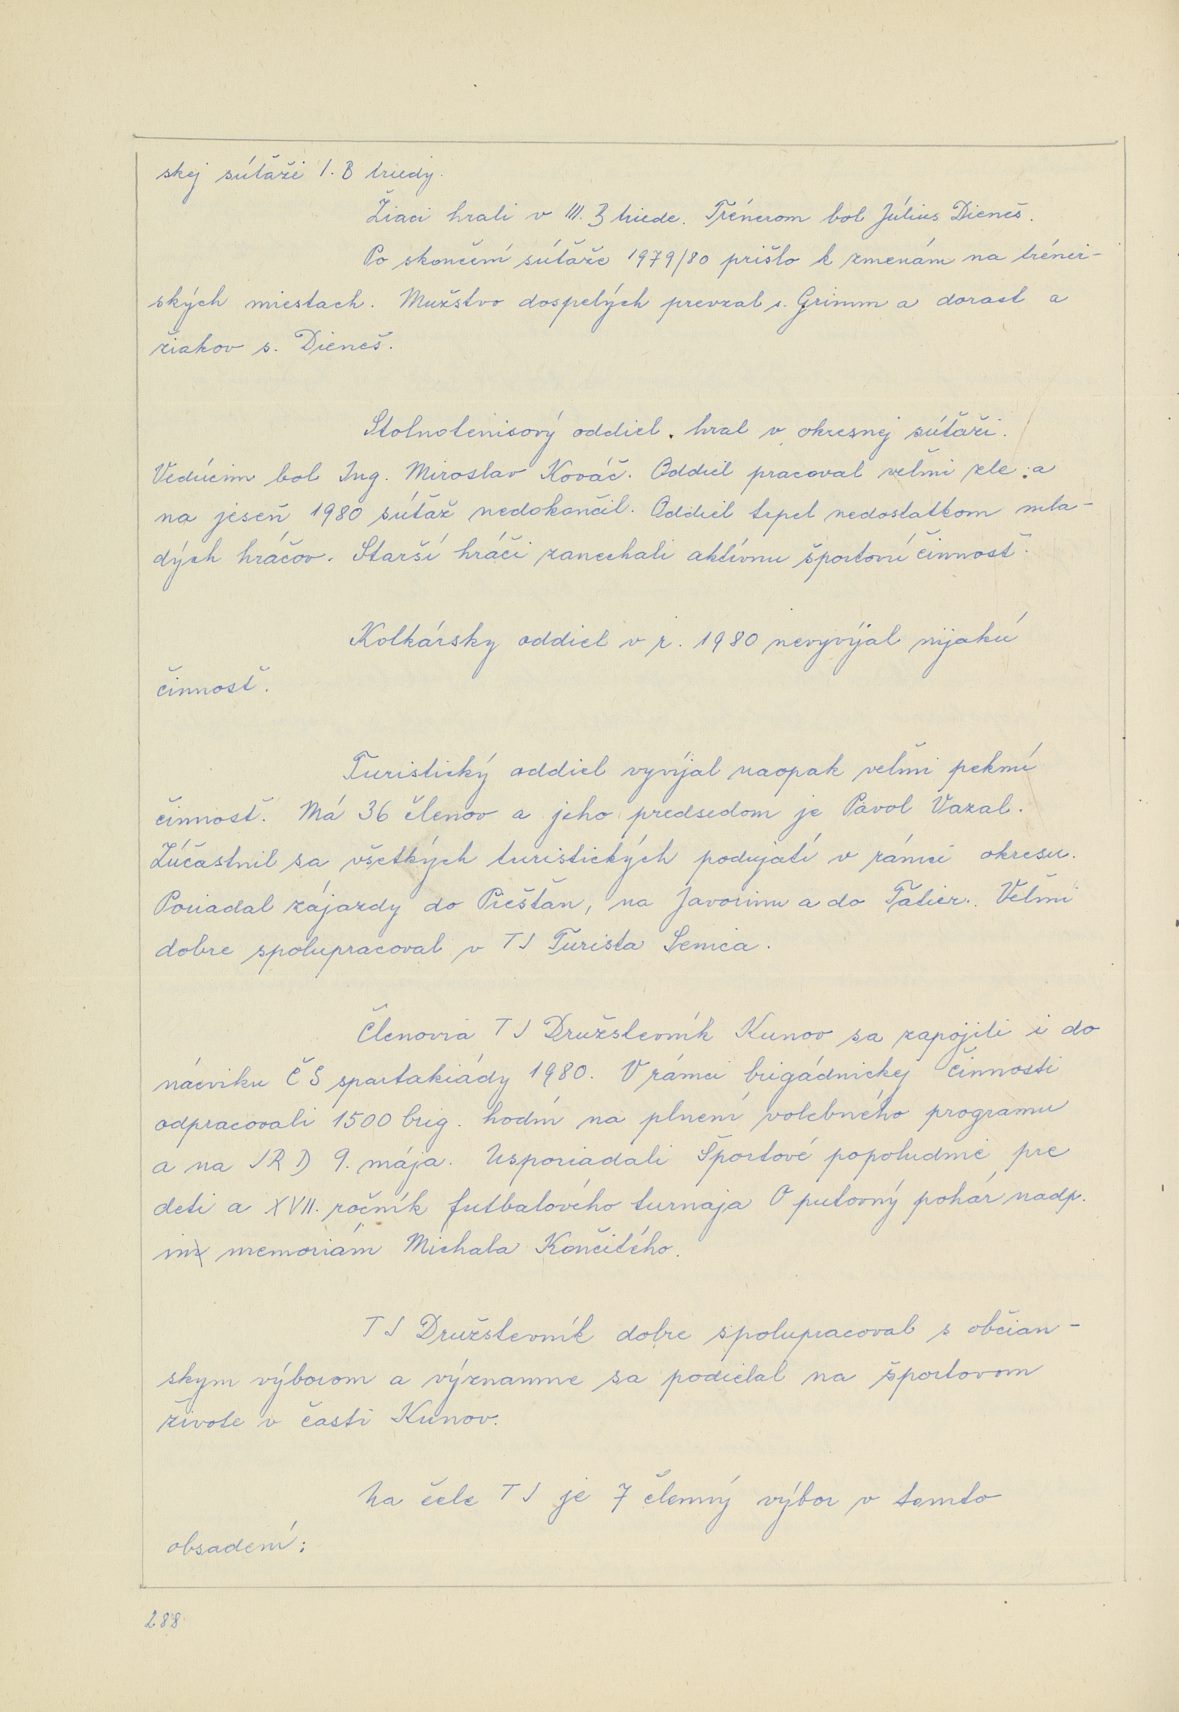 skej súťaži I. B triedy.
Žiaci hrali v III. B triede. Trénerom bol Július Dieneš.
Po skončení súťaže 1979/80 prišlo k zmenám na tréner-
ských miestach. Mužstvo dospelých prevzal s. Grimm a dorast a
žiakov s. Dieneš.
Stolnotenisový oddiel. hral v okresnej súťaži.
Vedúcim bol Ing. Miroslav Kováč. Oddiel pracoval veľmi zle a
na jeseň 1980 súťaž nedokončil. Oddiel trpel nedostatkom mla-
dých hráčov. Starší hráči zanechali aktívnu športovú činnosť.
Kolkársky oddiel v r. 1980 nevyvýjal nijakú
činnosť.
Turistický oddiel vyvýjal naopak veľmi peknú
činnosť. Má 36 členov a jeho predsedom je Pavol Vazal.
Zúčastnil sa všetkých turistických podujatí v rámci okresu.
Poriadal zájazdy do Piešťan, na Javorinu a do Tatier. Veľmi
dobre spolupracoval v TJ Turista Senica.
Členovia TJ Družstevník Kunov sa zapojili i do
nácviku ČS spartakiády 1980. V rámci brigádnickej činnosti
odpracovali 1500 brig. hodín na plnení volebného programu
a na JRD 9. mája. Usporiadali Športové popoludnie pre
deti a XVII. ročník futbalového turnaja O putovný pohár nadp.
memoriám Michala Končitého.
TJ Družstevník dobre spolupracoval s občian-
skym výborom a významne sa podieľal na športovom
živote v časti Kunov.
Na čele TJ je 7 členný výbor v tomto
obsadení:
288